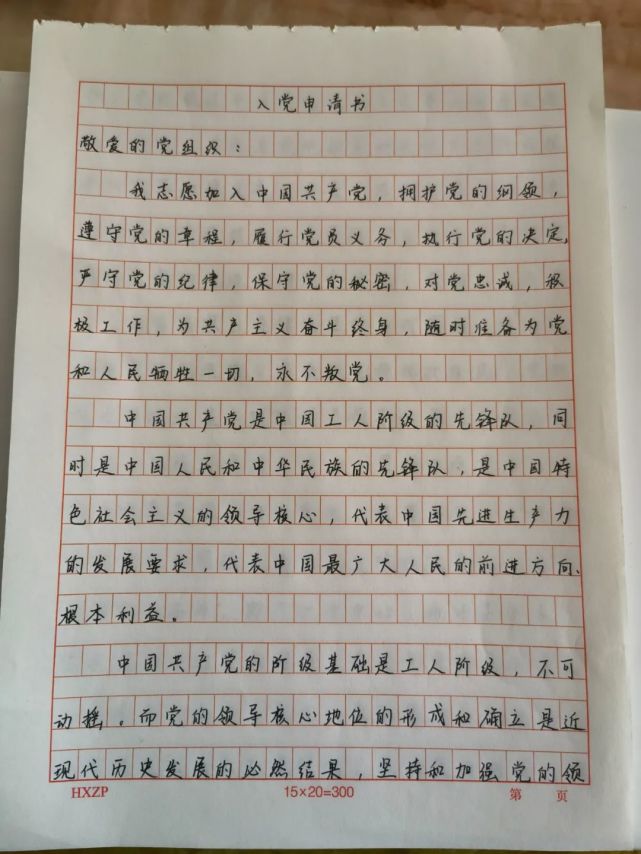 入党申请书
敬爱的党组织：
我志愿加入中国共产党，拥护党的纲领，
遵守党的章程，履行党员义务，执行党的决定，
严守党的纪律，保守党的秘密，对党忠诚，积
极工作，为共产主义奋斗终身，随时准备为党
和人民牺牲一切，永不叛党。
中国共产党是中国工人阶级的先锋队，同
时是中国人民和中华民族的先锋队，是中国特
色社会主义的领导核心，代表中国先进生产力
的发展要求，代表中国最广大人民的前进方向、
根本利益。
中国共产党的阶级基础是工人阶级，不可
动摇。而党的领导核心地位的形成和确立是近
现代历史发展的必然结果，坚持和加强党的领
HXZP 15×20=300 第 页